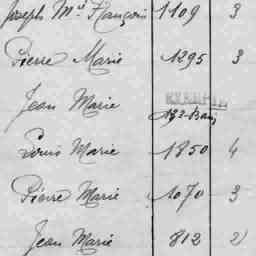 Joseph Mie François 1109 3
Pierre Marie 1295 3
Jean Marie EXEMPTÉ
Louis Marie 1350 4
Pierre Marie 1070 3
Jean Marie 812 2